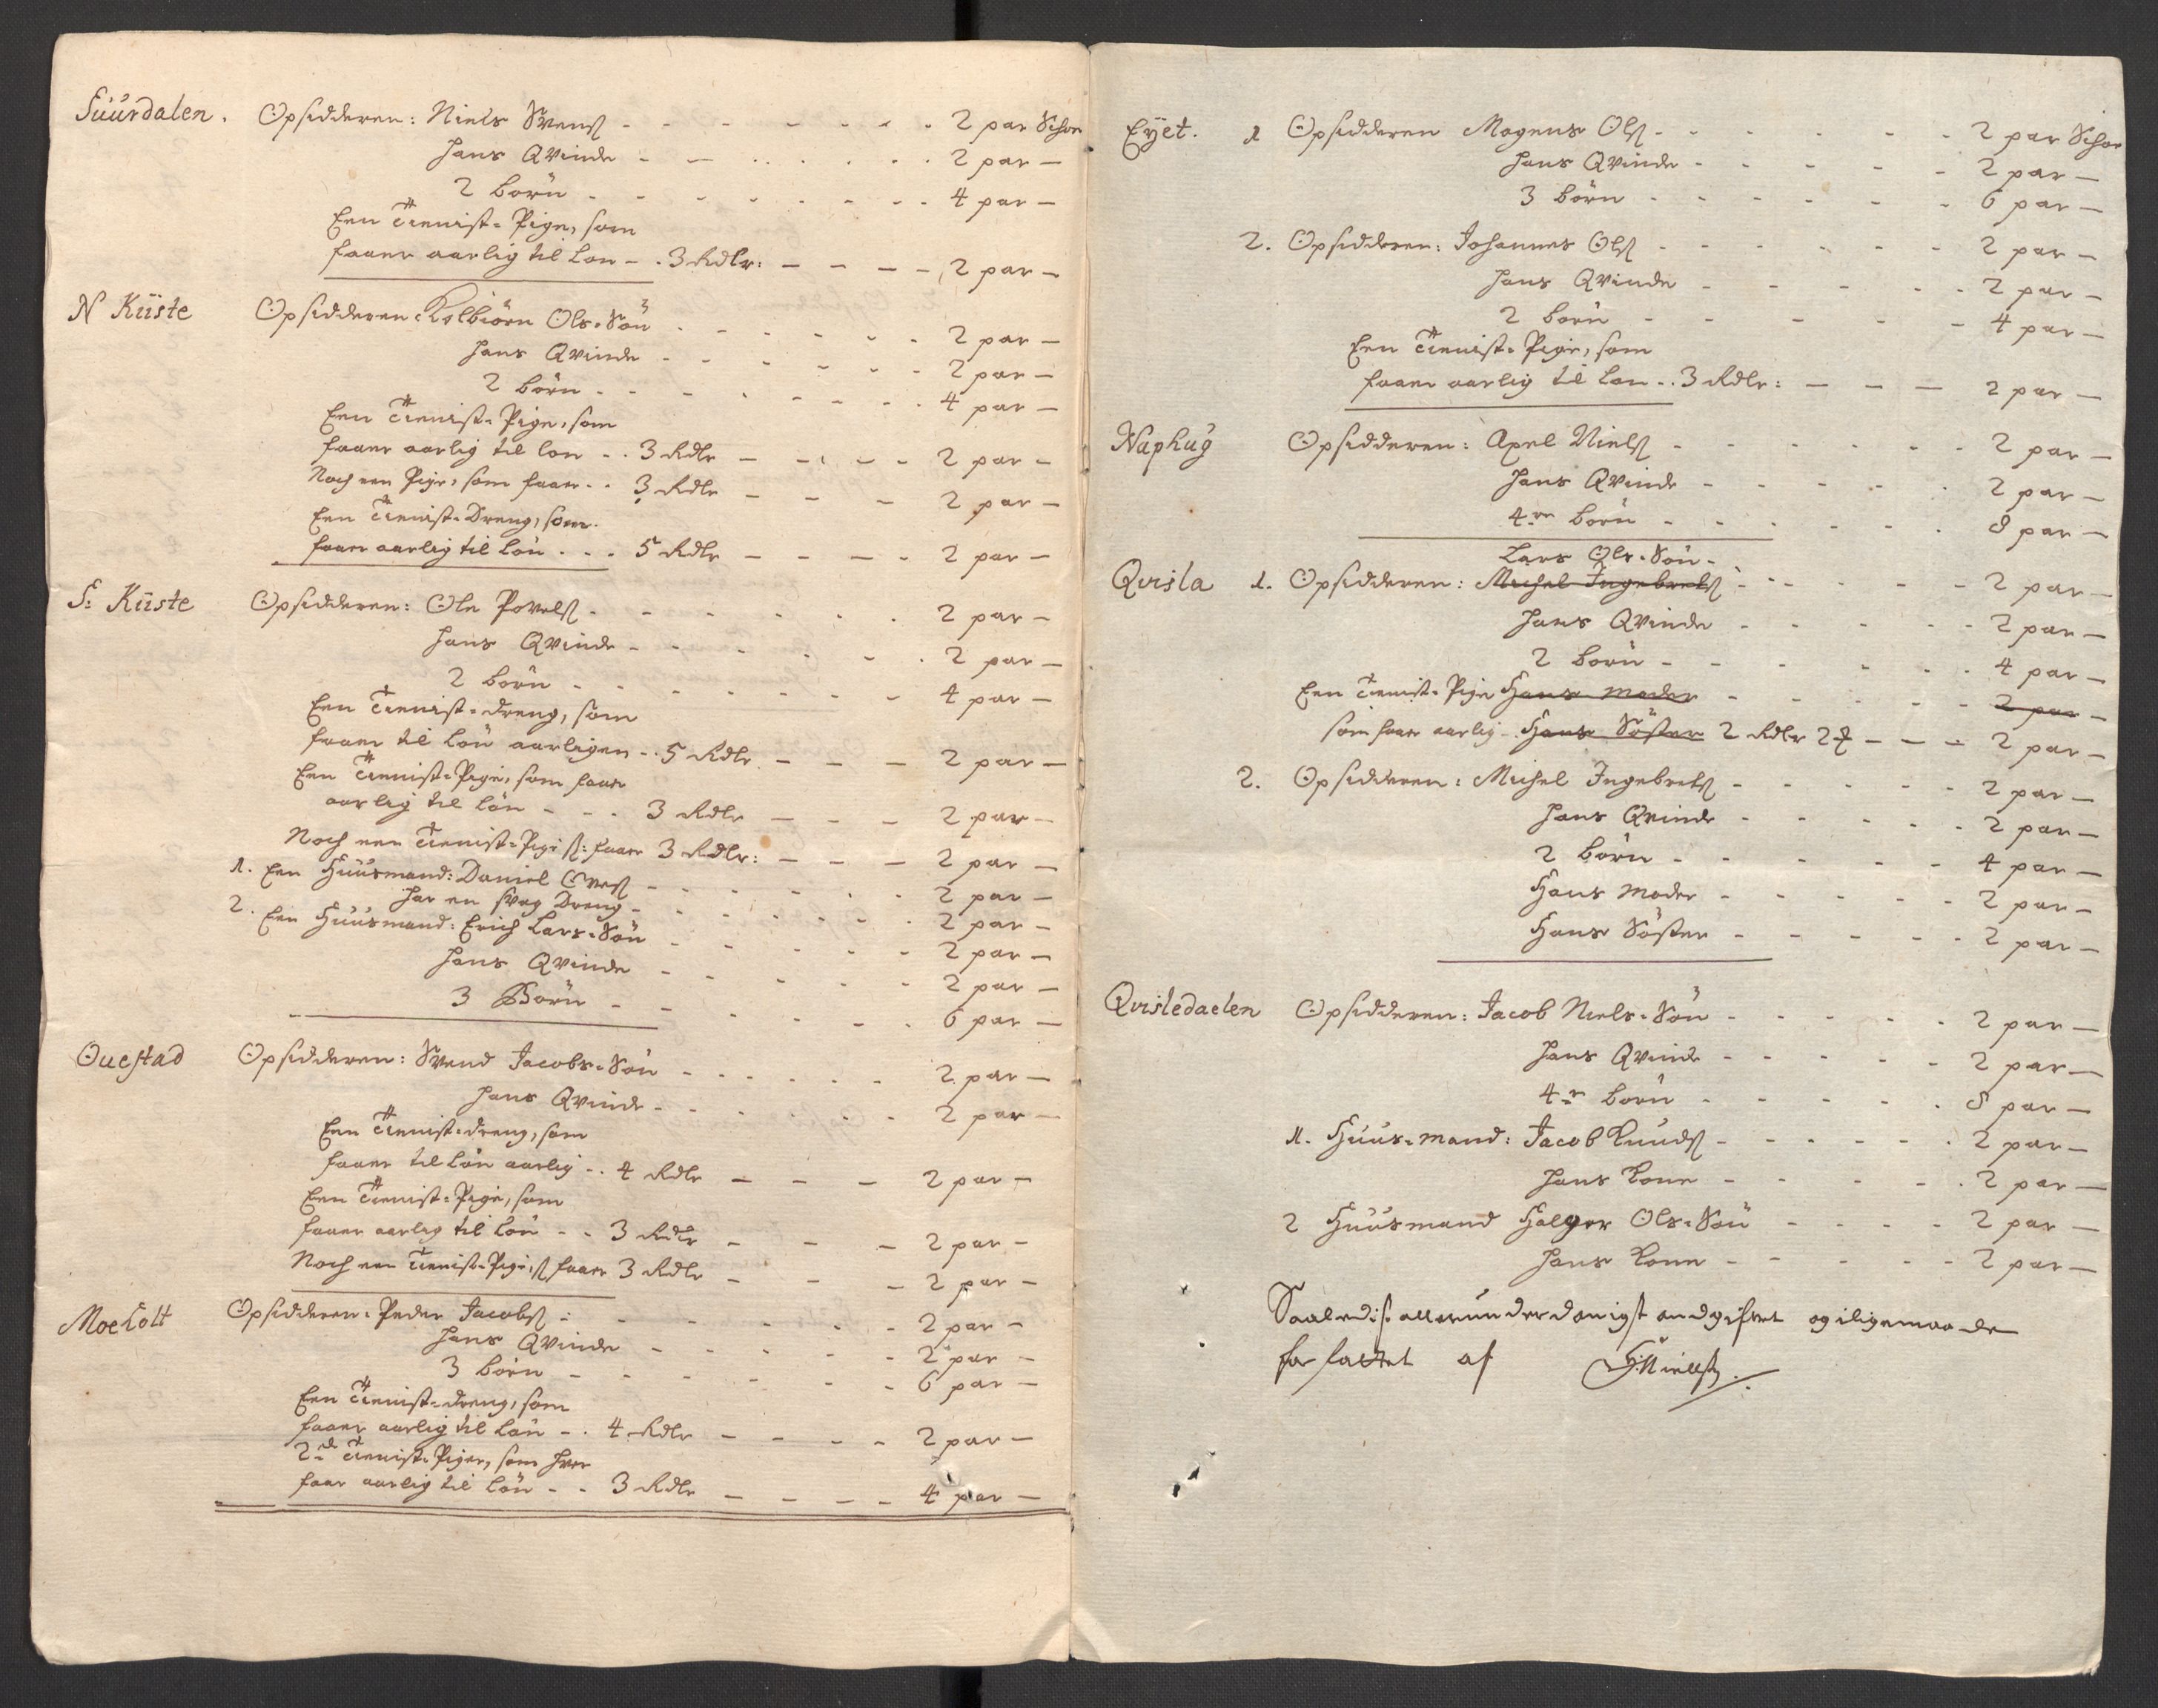 Suürdalen. Opsidderen: Niels Svens. - - - - - - - 2 par Schoe
hans Qvinde - - - - - - - 2 par —
2 börn - - - - - - - 4 par —
Een Tienist-Pige, som
faaer aarlig til Lön - . 3 Rdlr: - - - - 2 par —
N Küste Opsidderen: Kolbiörn Ols-Sön - - - - - - 2 par —
hans Qvinde - - - - - - 2 par —
2 börn - - - - - - - 4 par —
Een Tienist-Pige, som
faaer aarlig til lön - . 3 Rdlr - - - - 2 par —
Noch een Pige, som faaer - . 3 Rdlr - - - 2 par —
Een Tienist-Dreng, som
faaer aarlig til Lön . . . 5 Rdlr - - - - 2 par —
S: Küste Opsidderen: Ole Povels. - - - - - - 2 par —
hans Qvinde - - - - - - 2 par —
2 börn - - - - - - - 4 par —
Een Tienist-dreng, som
faaer til Lön aarligen - . 5 Rdlr - - - 2 par —
Een Tienist-Pige, som faaer
aarlig til Lön - - . 3 Rdlr - - - 2 par —
Noch een Tienist-Pige s: faaer 3 Rdlr: - - - 2 par —
1. Een Huüsmand: Daniel Oves. - - - - - 2 par —
har en svag Dreng - - - - - - 2 par —
2. Een Huüsmand: Erich Lars-Sön - - - - - 2 par —
hans Qvinde - - - - - - 2 par —
3 Börn - - - - - - 6 par —
Ouestad Opsidderen: Svend Jacobs-Sön - - - - - - 2 par —
hans Qvinde - - - - - - 2 par —
Een Tienist-dreng, som
faaer til Lön aarlig - . 4 Rdlr - - - 2 par —
Een Tienist-Pige, som
faaer aarlig til Lön - - 3 Rdlr - - - 2 par —
Noch een Tienist-Pige, s. faaer 3 Rdlr - - - 2 par —
Moeholt Opsidderen: Peder Jacobs. - - - - - - 2 par —
hans Qvinde - - - - - 2 par —
3 börn - - - - - - 6 par —
Een Tienist-dreng, som
faaer aarlig til Lön - . 4 Rdlr - - - - 2 par —
2de Tienist-Piger, som hver
faar aarlig til Lön - - 3 Rdlr - - - - 4 par —
Eyet. 1 Opsidderen Mogens Ols. - - - - - - 2 par Schoe
hans Qvinde - - - - - 2 par —
3 börn - - - - - - 6 par —
2. Opsidderen: Johannes Ols. - - - - - - 2 par —
hans Qvinde - - - - - 2 par —
2 börn - - - - - 4 par —
Een Tienist-Pige, som
faaer aarlig til Lön - . 3 Rdlr: - - - 2 par —
Naphüg Opsidderen: Axel Niels. - - - - - - 2 par —
hans Qvinde - - - - - 2 par —
4re börn - - - - - - 8 par —
Lars Ols-Sön -
Qvisla 1. Opsidderen: Michel Ingebrets. - - - - - 2 par —
hans Qvinde - - - - - 2 par —
2 börn - - - - - - 4 par —
Een Tienist-Pige Hans Moder - - - - - 2 par —
som faaer aarlig - Hans Söster 2 Rdlr 2 - - - 2 par —
2. Opsidderen: Michel Ingebrets. - - - - - 2 par —
hans Qvinde - - - - - 2 par —
2 börn - - - - - 4 par —
Hans Moder - - - - - 2 par —
Hans Söster - - - - - 2 par —
Qvisledaelen Opsidderen: Jacob Niels-Sön - - - - - 2 par —
hans Qvinde - - - - - 2 par —
4re börn - - - - - 8 par —
1. Huus-mand: Jacob Knuds. - - - - - - 2 par —
hans Kone - - - - - 2 par —
2 Huüsmand Holger Ols-Sön - - - - 2 par —
hans Kone - - - - - 2 par —
Saaledis alleründerdanigst andgifvet og iligemaade
forfattet af